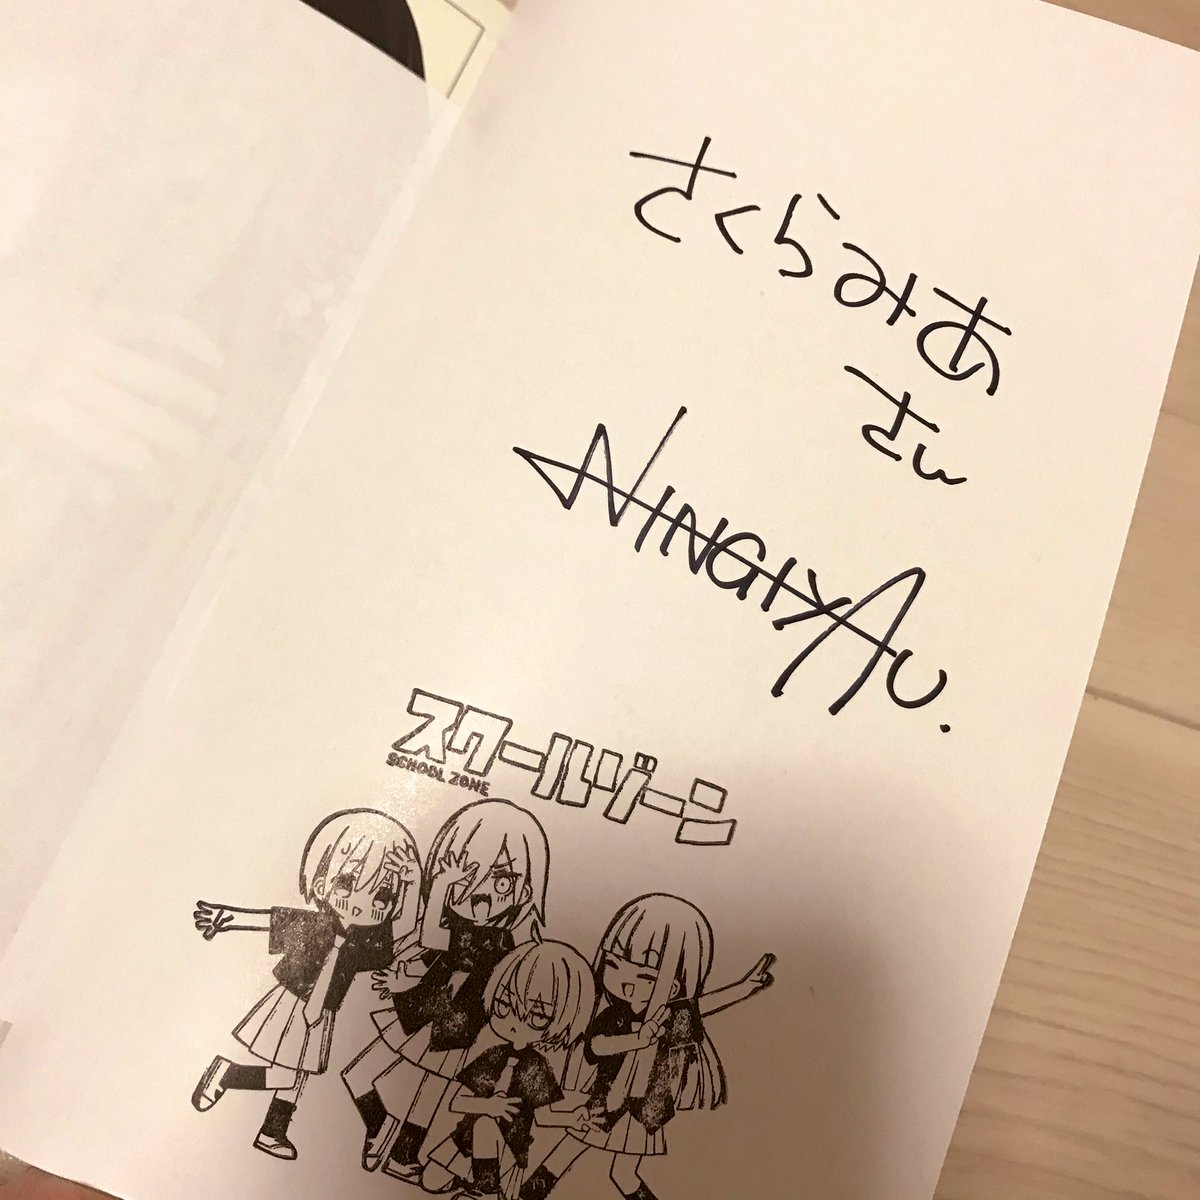 さくらみあ
さん
NINGIYAU.
スクールゾーン
SCHOOL ZONE